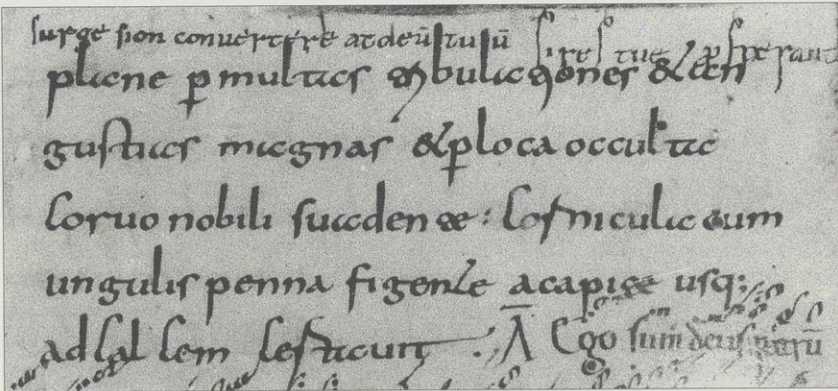 surge sion convertere at deū tuū
plane p multas tribulationes & an
gustias magnas & p loca occulta
Coruo nobili suadente : cum
ungulis penna figente a capite usq;
ad cal cem A Ego sum deus patrū